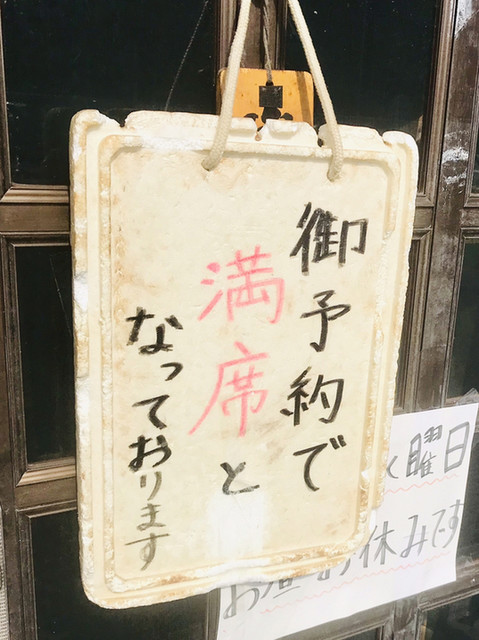 御予約で
満席と
なっております
曜日
お休みです